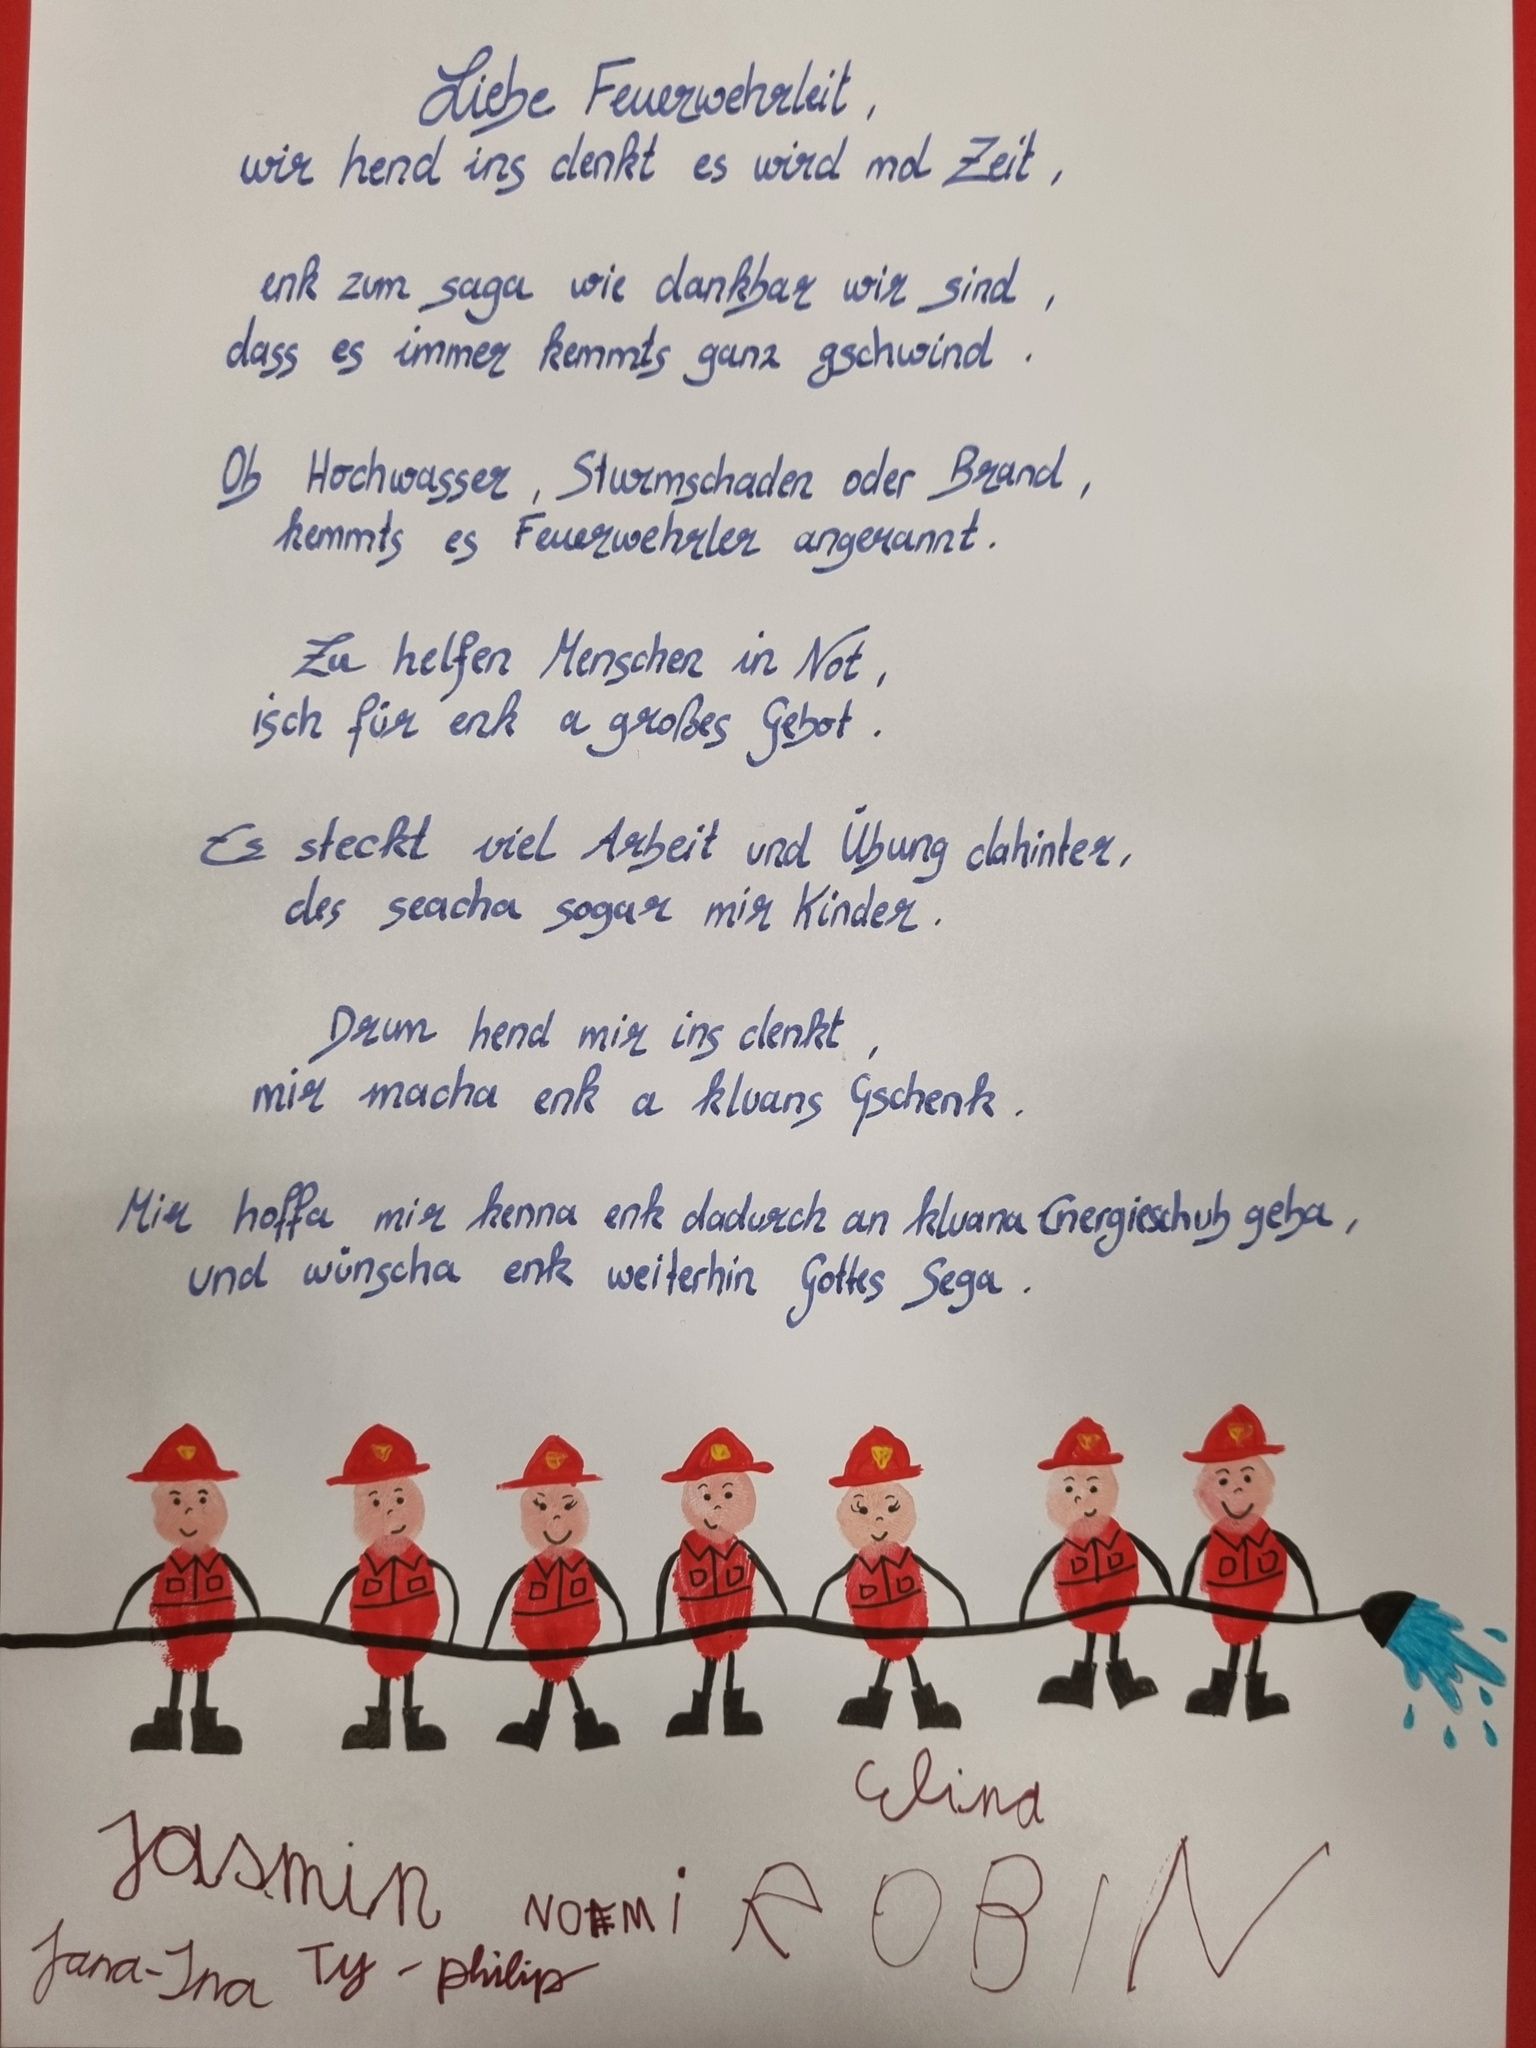 Liebe Feuerwehrleit,
wir hend ins denkt es wird md Zeit,
enk zum saga wie dankbar wir sind,
dass es immer kemmts ganz gschwind.
Ob Hochwasser, Sturmschaden oder Brand,
kemmts es Feuerwehrler angerannt.
Zu helfen Menschen in Not,
isch für enk a großes Gebot.
Es steckt viel Arbeit und Übung dahinter,
des seacha sogar mir Kinder.
Drum hend mir ins denkt,
mir macha enk a kluans Gschenk.
Mir hoffa mir kenna enk dadurch an kluana Energieschub geba,
und wünscha enk weiterhin Gottes Sega.
Elina
Jasmin NOEMi ROBIN
Jana-Ina Ty-philip